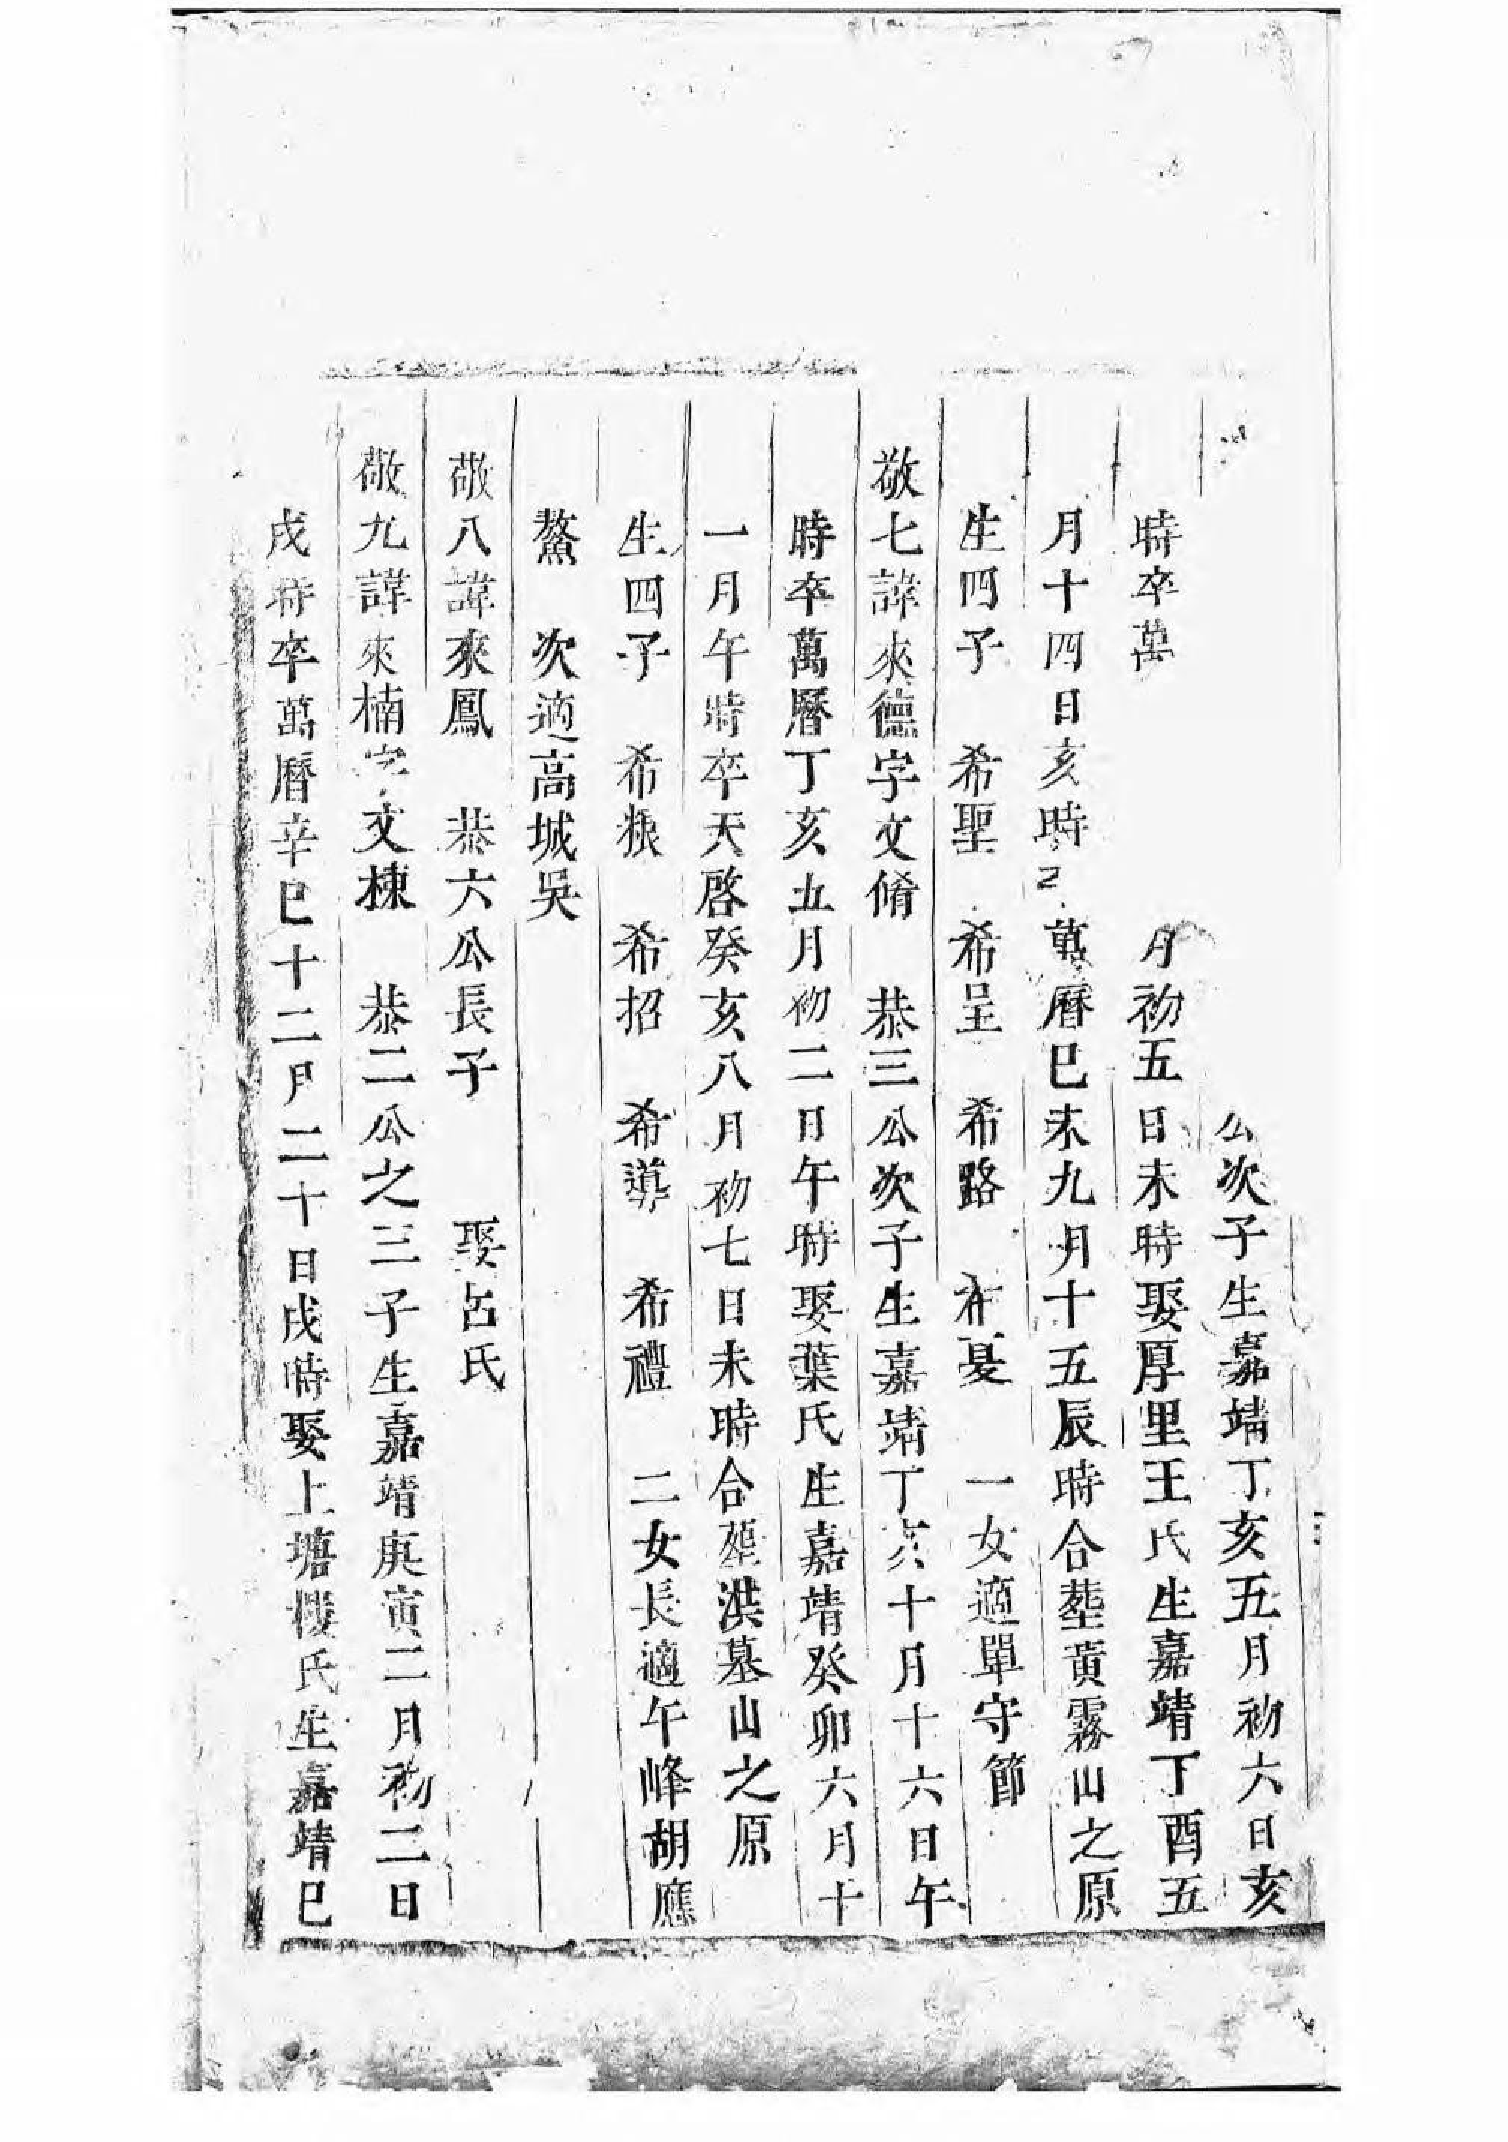 公次子生嘉靖丁亥五月初六日亥
時卒萬 月初五日未時娶厚里王氏生嘉靖丁酉五
月十四日亥時 萬曆巳未九月十五辰時合塟黃霧山之原
生四子 希聖 希呈 希路 希夏 一女適單守節
敬七諱來德字文脩 恭三公次子生嘉靖丁亥十月十六日午
時卒萬曆丁亥五月初二日午時娶葉氏生嘉靖癸卯六月十
一月午時卒天啓癸亥八月初七日未時合塟洪墓山之原
生四子 希粮 希招 希導 希禮 二女長適午峰胡應
鰲 次適高城吳
敬八諱來鳳 恭六公長子 娶呂氏
敬九諱來楠字文棟 恭二公之三子生嘉靖庚寅二月初二日
戌時卒萬曆辛巳十二月二十日戌時娶上塘樓氏生嘉靖巳